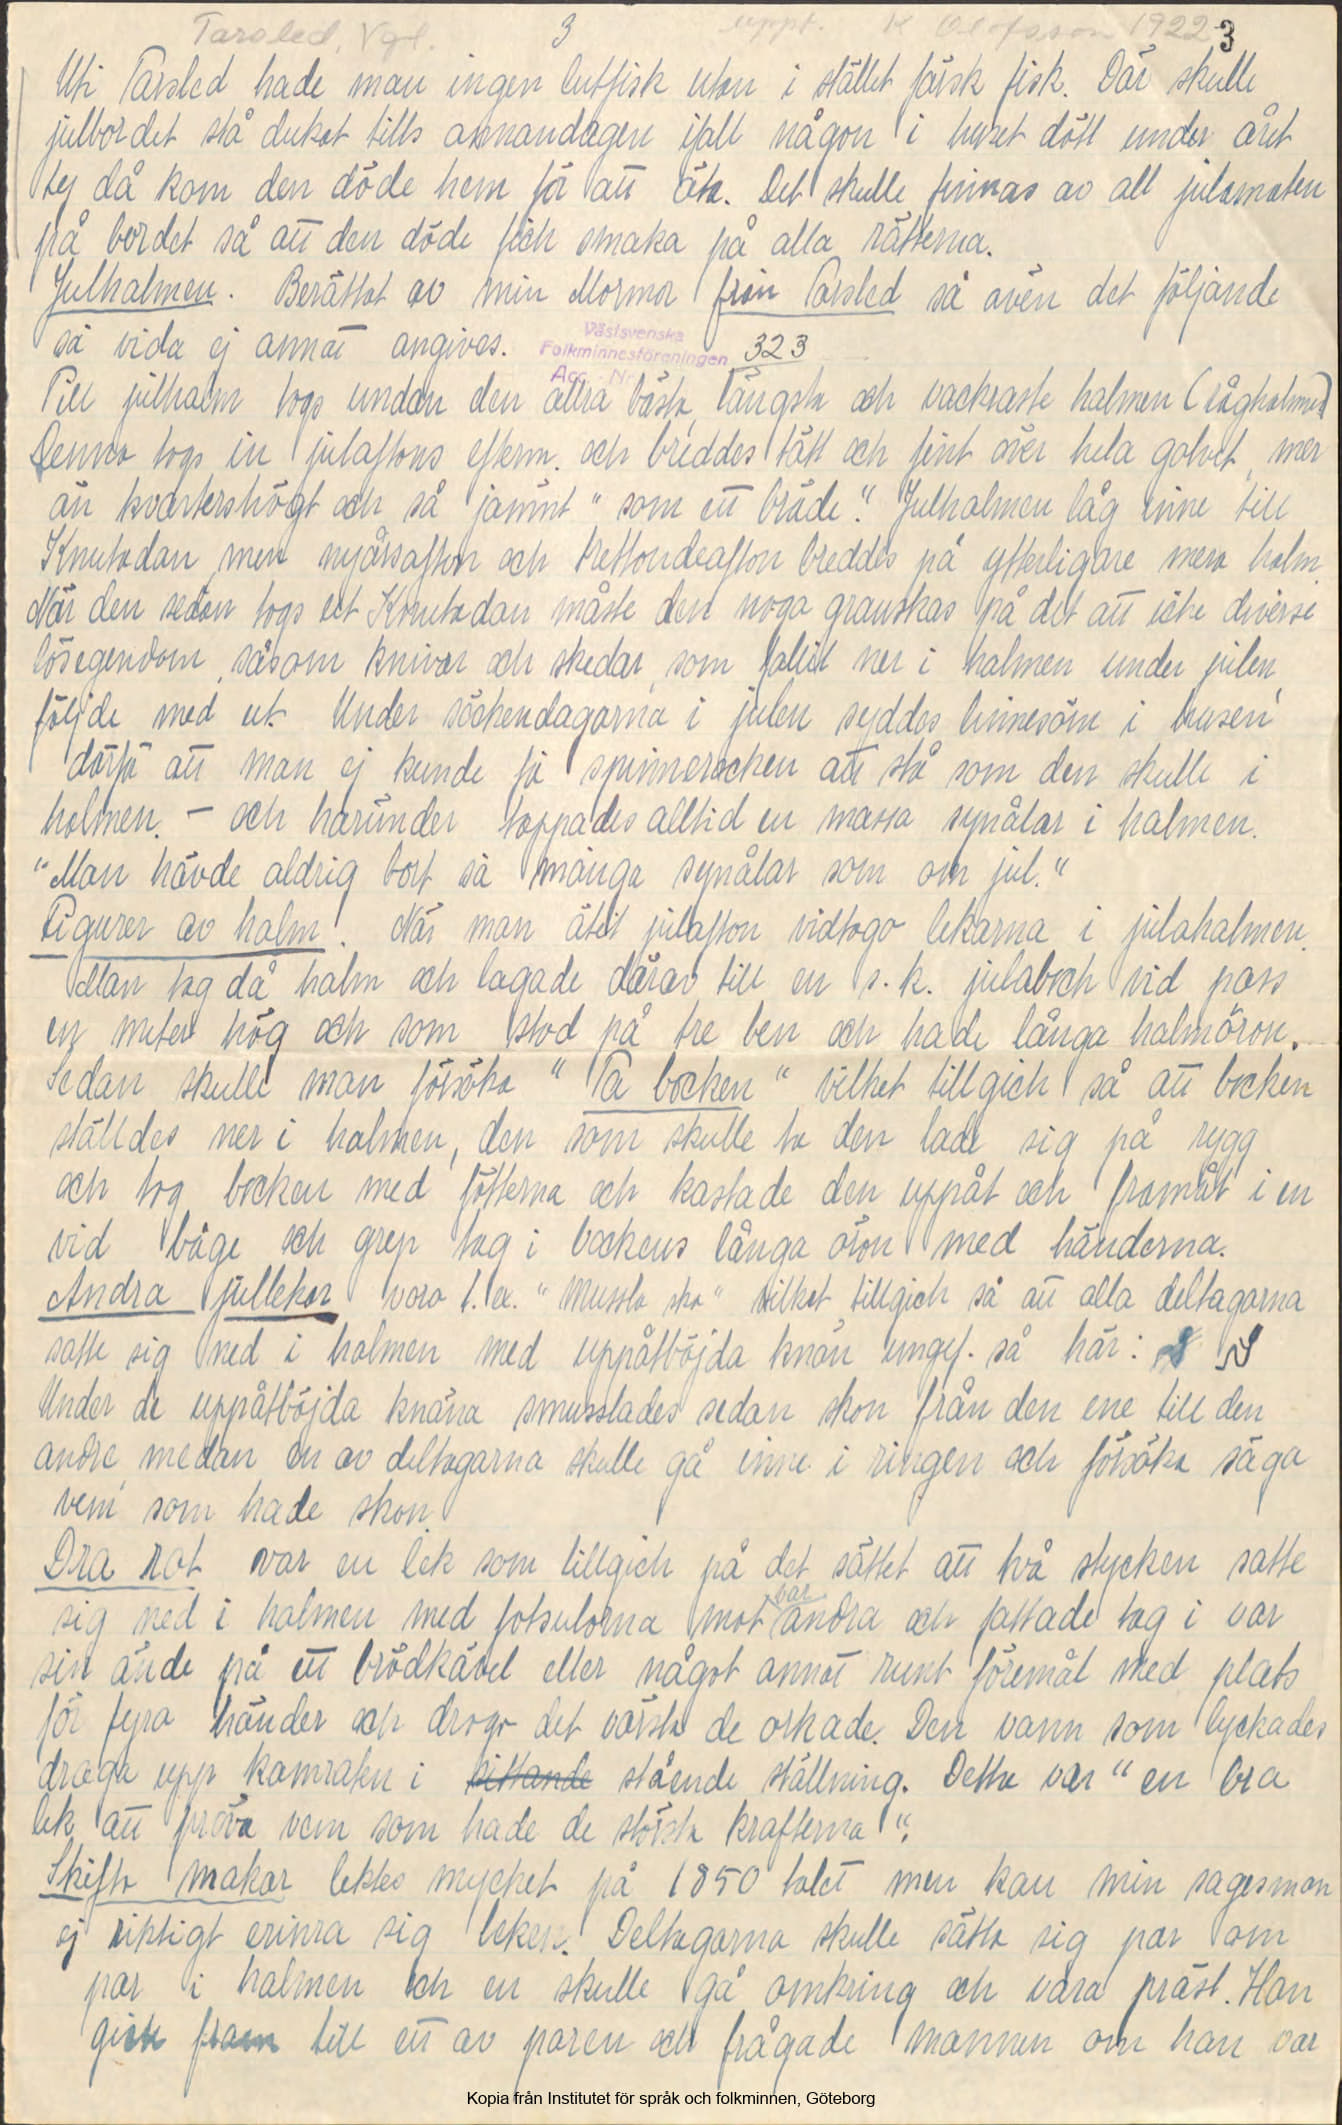 Tarsled, Vgl. 3 uppt. K Olofsson 1922 3
Uti Tarsled hade man ingen lutfisk utan i stället färsk fisk. Där skulle
julbordet stå dukat tills annandagen ifall någon i huset dött under året
ty då kom den döde hem för att äta. Det skulle finnas av all julamaten
på bordet så att den döde fick smaka på alla rätterna.
Julhalmen. Berättat av min Mormor från Tarsled så även det följande
så vida ej annat angives.
Västsvenska
Folkminnesföreningen 323
Acc. Nr
Till julhalm togs undan den allra bästa, längsta och vackraste halmen (råghalmen)
Denna togs in julaftons efterm. och breddes tätt och fint över hela golvet, mer
än kvartershögt och så jämnt "som ett bräde." Julhalmen låg inne till
Knutadan, men nyårsafton och trettondeafton breddes på ytterligare mera halm.
När den sedan togs ut Knutadan måste den noga granskas på det att icke diverse
lösegendom, såsom knivar och skedar, som fallit ner i halmen under julen,
följde med ut. Under söckendagarna i julen syddes linnesöm i husen
därför att man ej kunde få spinnerocken att stå som den skulle i
halmen. – och härunder tappades alltid en massa synålar i halmen.
"Man hävde aldrig bort så många synålar som om jul."
Figurer av halm. När man ätit julafton vidtogo lekarna i julahalmen.
Man tog då halm och lagade därav till en s.k. julabock vid pass
en meter hög och som stod på tre ben och hade långa halmöron.
Sedan skulle man försöka "Ta bocken" vilket tillgick så att bocken
ställdes ner i halmen, den som skulle ta den lade sig på rygg
och tog bocken med fötterna och kastade den uppåt och framåt i en
vid båge och grep tag i bockens långa öron med händerna.
Andra jullekar voro t.ex. "Mussla sko" vilket tillgick så att alla deltagarna
satte sig ned i halmen med uppåtböjda knän ungef. så här:
Under de uppåtböjda knäna smusslades sedan skon från den ene till den
andre, medan en av deltagarna skulle gå inne i ringen och försöka säga
vem som hade skon.
Dra rot var en lek som tillgick på det sättet att två stycken satte
sig ned i halmen med fotsulorna mot varandra och fattade tag i var
sin ände på ett brödkavel eller något annat runt föremål med plats
för fyra händer och drogo det värsta de orkade. Den vann som lyckades
draga upp kamraten i sittande stående ställning. Detta var "en bra
lek att pröva vem som hade de största krafterna".
Skifta makar lektes mycket på 1850 talet men kan min sagesman
ej riktigt erinra sig leken. Deltagarna skulle sätta sig par om
par i halmen och en skulle gå omkring och vara präst. Han
gick fram till ett av paren och frågade mannen om han var
Kopia från Institutet för språk och folkminnen, Göteborg